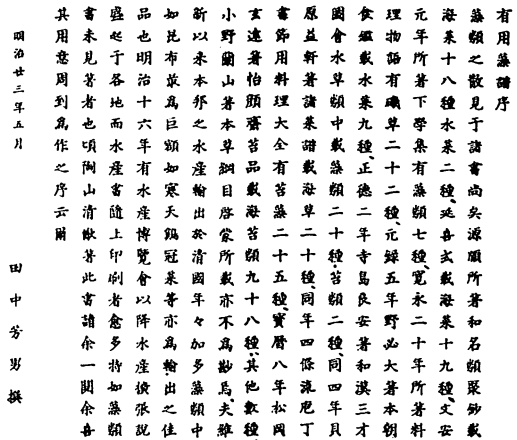 有用藻譜序
藻類之散見于諸書尚矣源順所著和名類聚鈔載
海菜十八種水菜二種、延喜式載海菜十九種、文安
元年所著下學集有藻類七種、寛永二十年所著料
理物語有磯草二十二種、元祿五年野必大著本朝
食鑑載水菜九種、正德二年寺島良安著和漢三才
圖會水草類中載藻類二十種、苔類二種、同四年貝
原益軒著諸菜譜載海草二十種、同年四條流庖丁
書節用料理大全有苔藻二十五種、寶暦八年松岡
玄達著怡顏齋苔品載海苔類九十八種、其他數種
小野蘭山著本草綱目啓蒙所載亦不為尠焉、夫維
新以来本邦之水産輸出於清國年々加多藻類中
如昆布最為巨額如寒天鷄冠菜等亦為輸出之佳
品也明治十六年有水産博覽會以降水産擴張説
盛起于各地而水産書隨上印刷者愈多特如藻類
書未見著者也頃陶山清猷著此書請余一閲余喜
其用意周到為作之序云爾
明治廿三年五月
田中芳男撰